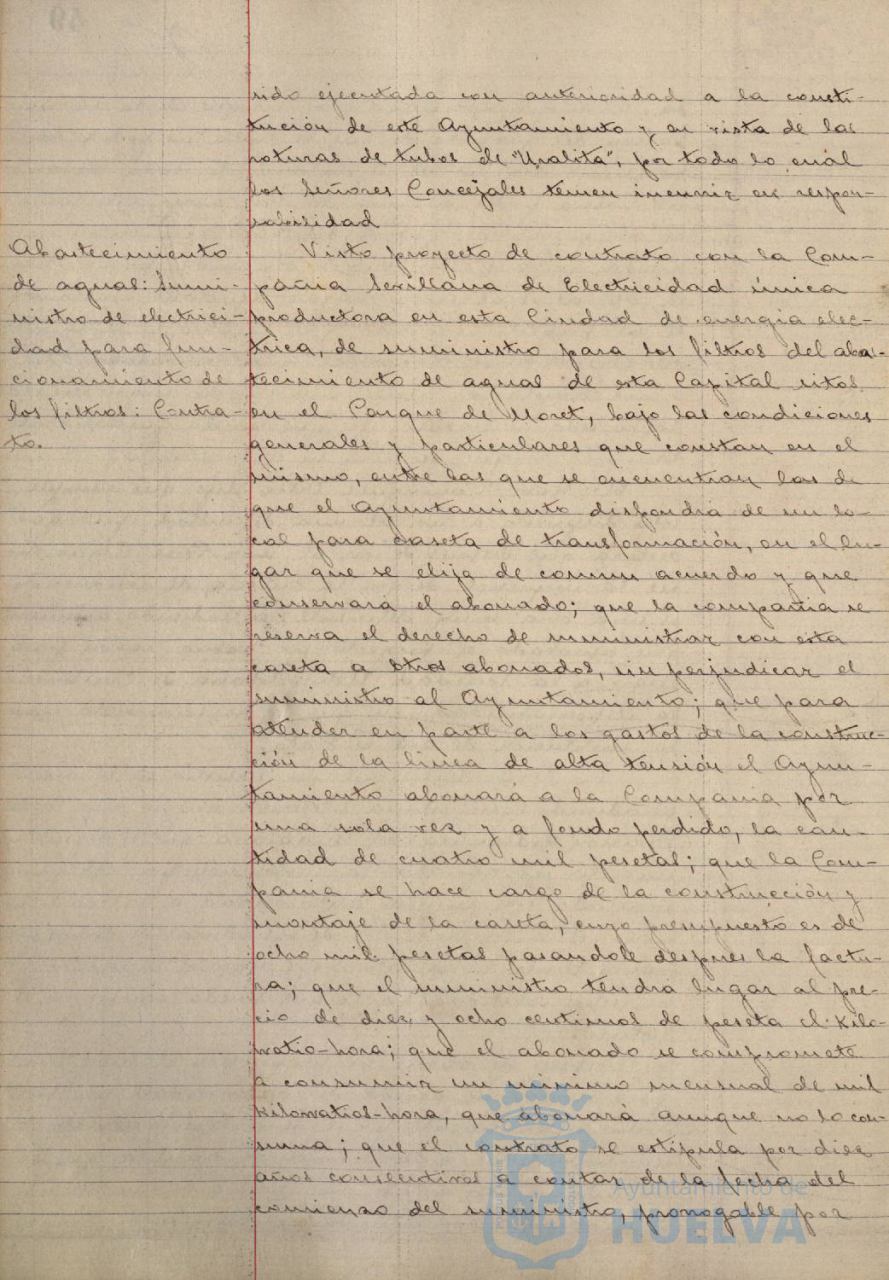 sido ejecutada con anterioridad a la consti-
tución de este Ayuntamiento y en vista de las
roturas de tubos de "Uralita", por todo lo cual
los Señores Concejales temen incurrir en respon-
sabilidad
Abastecimiento
de aguas: Sumi-
nistro de electrici-
dad para fun-
cionamiento de
los filtros: Contra-
to.
Visto proyecto de contrato con la Com-
pañia Sevillana de Electricidad única
productora en esta Ciudad de energia eléc-
trica, de suministro para los filtros del abas-
tecimiento de aguas de esta Capital sitos
en el Parque de Moret, bajo las condiciones
generales y particulares que constan en el
mismo, entre las que se encuentran las de
que el Ayuntamiento dispondra de un lo-
cal para caseta de transformación, en el lu-
gar que se elija de comun acuerdo y que
conservará el abonado; que la compañia se
reserva el derecho de suministrar con esta
caseta a otros abonados, sin perjudicar el
suministro al Ayuntamiento; que para
atender en parte a los gastos de la construc-
ción de la linea de alta tensión el Ayun-
tamiento abonará a la Compania por
una sola vez y a fondo perdido, la can-
tidad de cuatro mil pesetas; que la Com-
pania se hace cargo de la construcción y
montaje de la caseta, cuyo presupuesto es de
ocho mil pesetas pasandole despues la factu-
ra; que el suministro tendra lugar al pre-
cio de diez y ocho centimos de peseta el kilo-
vatio-hora; que el abonado se compromete
a consumir un minimo mensual de mil
kilovatios-hora, que abonará aunque no lo con-
suma; que el contrato se estipula por diez
años consecutivos a contar de la fecha del
comienzo del suministro, prorrogable por
Ayuntamiento de
HUELVA